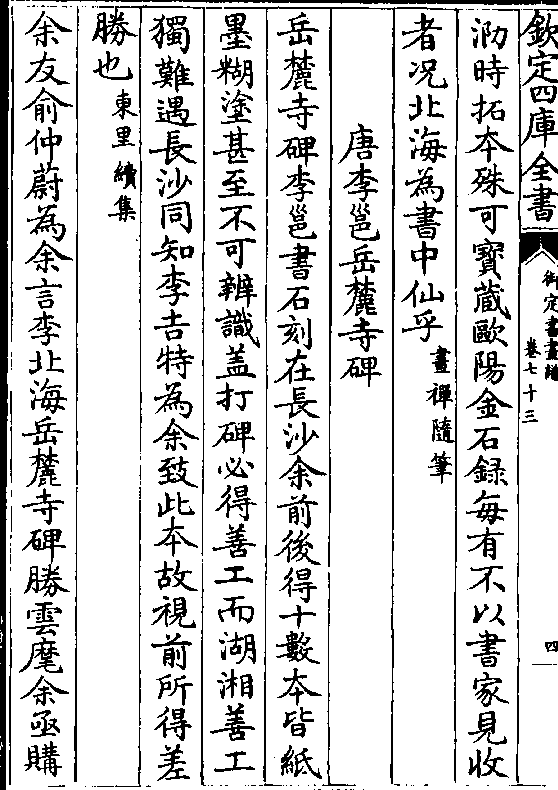 欽定四庫全書
御定書畫譜
卷七十三
四
泐時拓本殊可寶蔵歐陽金石録每有不以書家見收
者况北海為書中仙乎畫禪隨筆
唐李邕岳麓寺碑
岳麓寺碑李邕書石刻在長沙余前後得十數本皆紙
墨糊塗甚至不可辨識盖打碑必得善工而湖湘善工
獨難遇長沙同知李吉特為余致此本故視前所得差
勝也東里續集
余友俞仲蔚為余言李北海岳麓寺碑勝雲麾余亟購